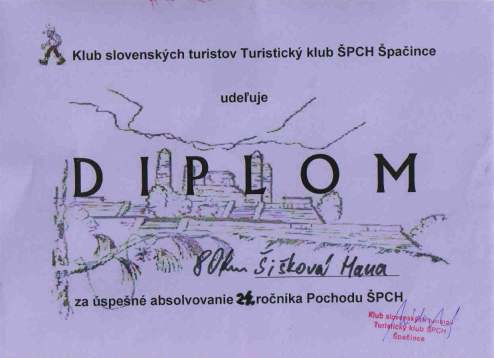 Klub slovenských turistov Turistický klub ŠPCH Špačince
udeľuje
DIPLOM
80km Šišková Hana
za úspešné absolvovanie 24. ročníka Pochodu ŠPCH
Klub slovenských turistov
Turistický klub ŠPCH
Špačince